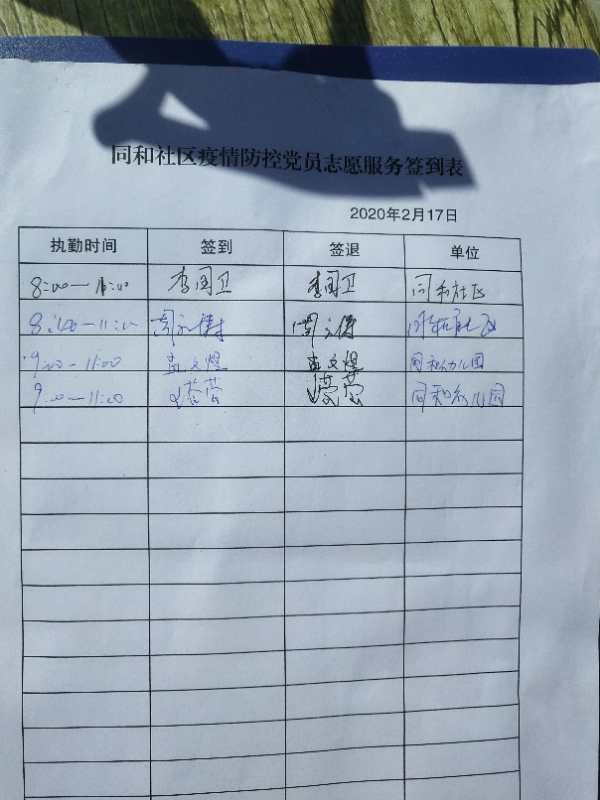 同和社区疫情防控党员志愿服务签到表
2020年2月17日
执勤时间 签到 签退 单位
8:00—11:00 李国卫 李国卫 同和社区
8:00—11:00 周 周 同和社区
9:00—11:00 孟文煜 孟文煜 同和幼儿园
9:00—11:00 同和幼儿园